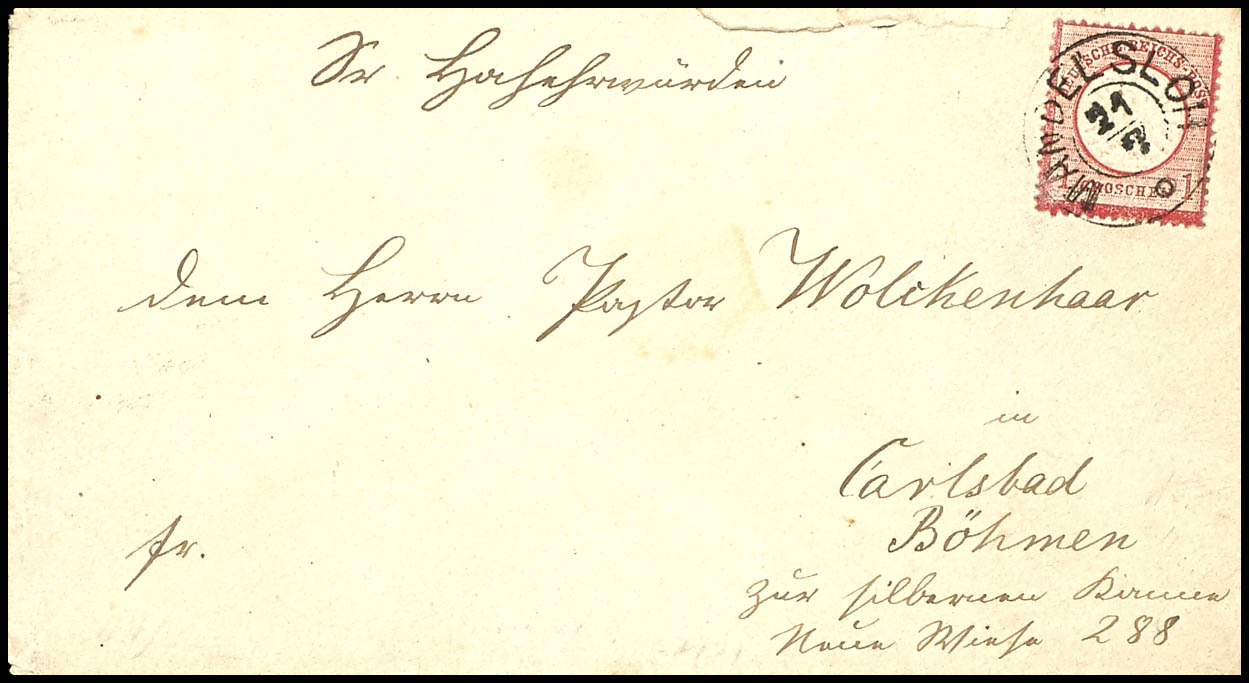 Sr Hochehrwürden
DEUTSCHE REICHS-POST
MANDELSLOH
21/3
1 GROSCHEN 1
dem Herrn Pastor Wolckenhaar
in
Carlsbad
Böhmen
fr.
zur silbernen Kanne
Neue Wiese 288